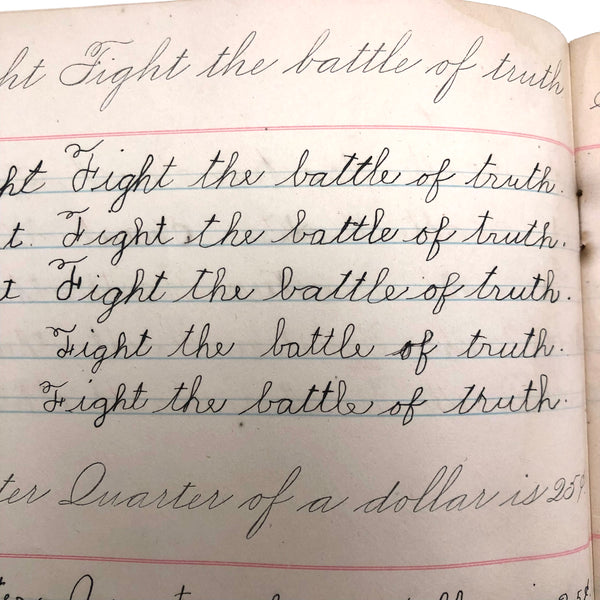 ht Fight the battle of truth
ht Fight the battle of truth.
t. Fight the battle of truth.
t Fight the battle of truth.
Fight the battle of truth.
Fight the battle of truth.
ter Quarter of a dollar is 25¢